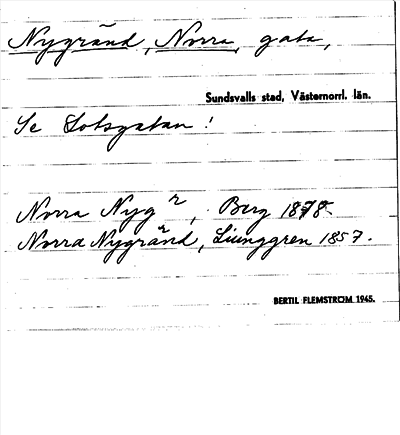 Nygränd, Norra, gata,
Sundsvalls stad, Västernorrl. län.
Se Lotsgatan!
Norra Nyg r, Berg 1878
Norra Nygränd, Ljunggren 1857.
BERTIL FLEMSTRÖM 1945.